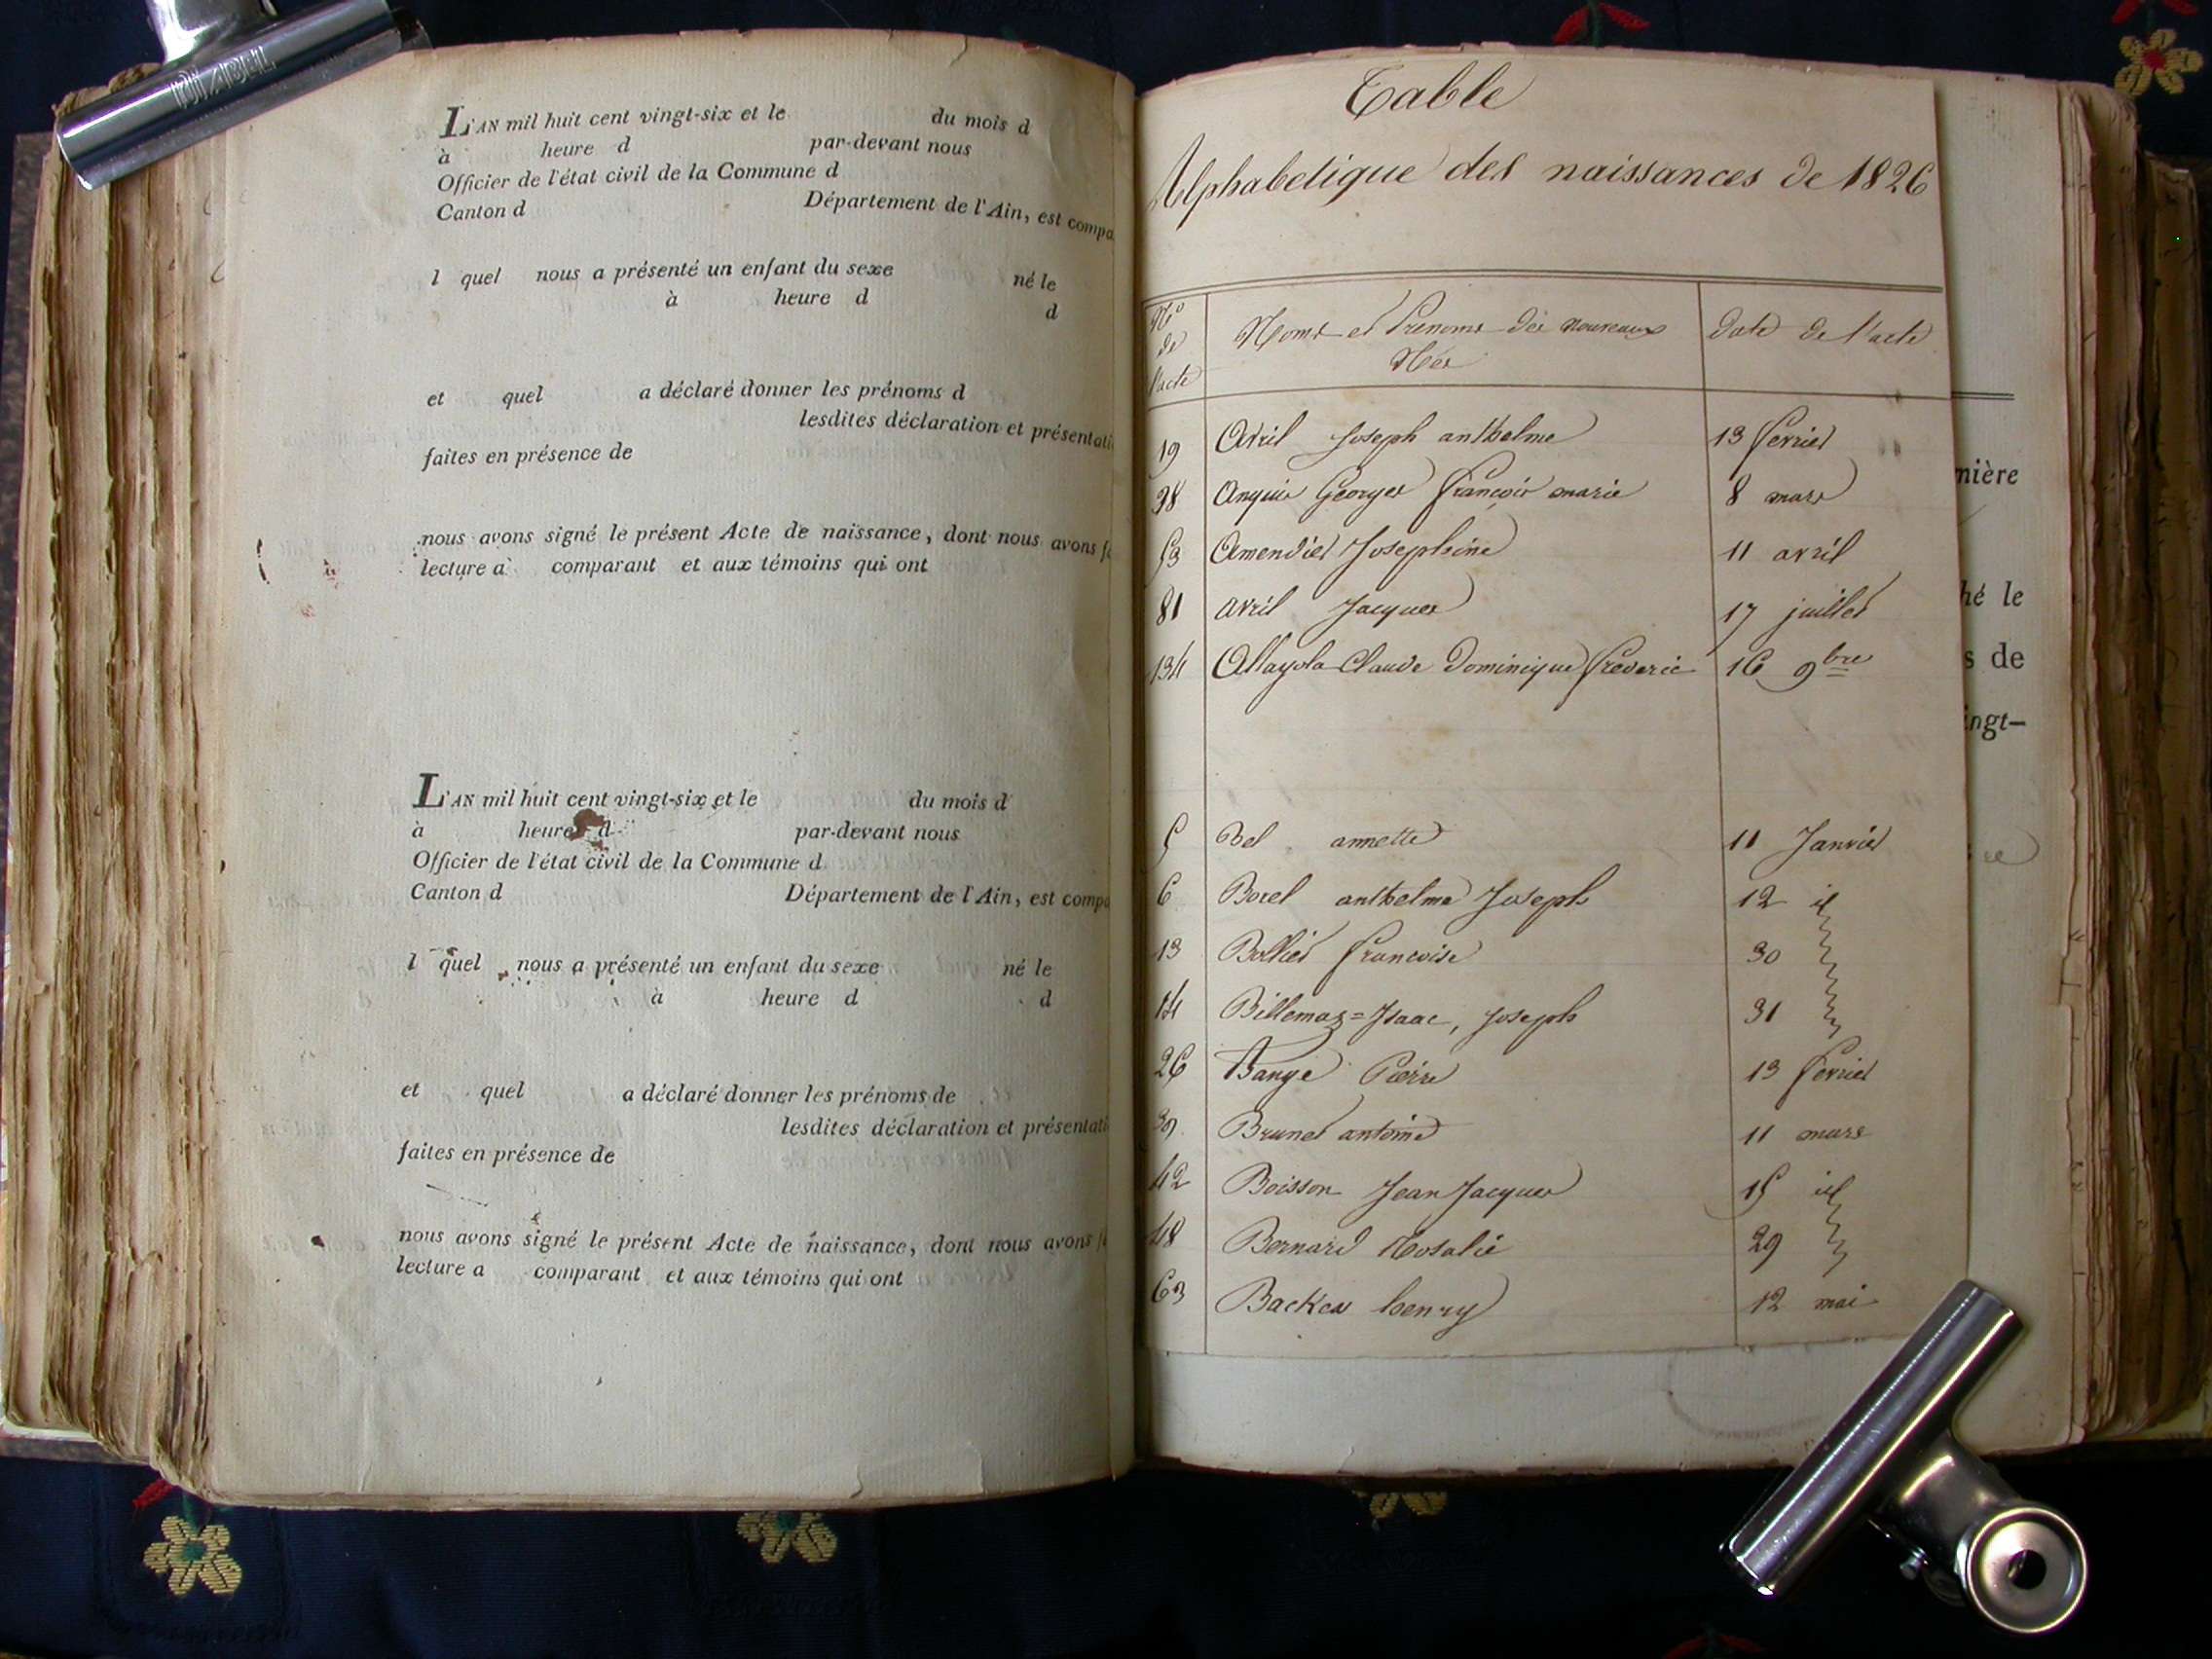 DIZABEL
L'AN mil huit cent vingt-six et le du mois d
à heure d par-devant nous
Officier de l'état civil de la Commune d
Canton d Département de l'Ain, est compa
l quel nous a présenté un enfant du sexe né le
à heure d d
et quel a déclaré donner les prénoms d
lesdites déclaration et présentati
faites en présence de
nous avons signé le présent Acte de naissance, dont nous avons f
lecture a comparant et aux témoins qui ont
L'AN mil huit cent vingt-six et le du mois d
à heure d par-devant nous
Officier de l'état civil de la Commune d
Canton d Département de l'Ain, est compa
l quel nous a présenté un enfant du sexe né le
à heure d d
et quel a déclaré donner les prénoms de
lesdites déclaration et présentati
faites en présence de
nous avons signé le présent Acte de naissance, dont nous avons f
lecture a comparant et aux témoins qui ont
Table
Alphabetique des naissances de 1826
N° de l'acte
Noms et Prenoms des nouveaux
Nés
Date de l'acte
19 Avril Joseph anthelme 13 fevrier
38 Georges françois marie 8 mars
53 Amendier Josephine 11 avril
81 avril Jacques 17 juillet
134 Claude Dominique frederic 16 9bre
5 Bel annette 11 Janvier
6 Borel anthelme Joseph 12 id
13 Bollier francoise 30
14 Billemaz=Isaac, Joseph 31
26 Bange Pierre 13 fevrier
39 Brunet antoine 11 mars
42 Boisson Jean Jacques 15 id
48 Bernard Rosalie 29
63 Backes henry 12 mai
mière
hé le
s de
ingt-
re